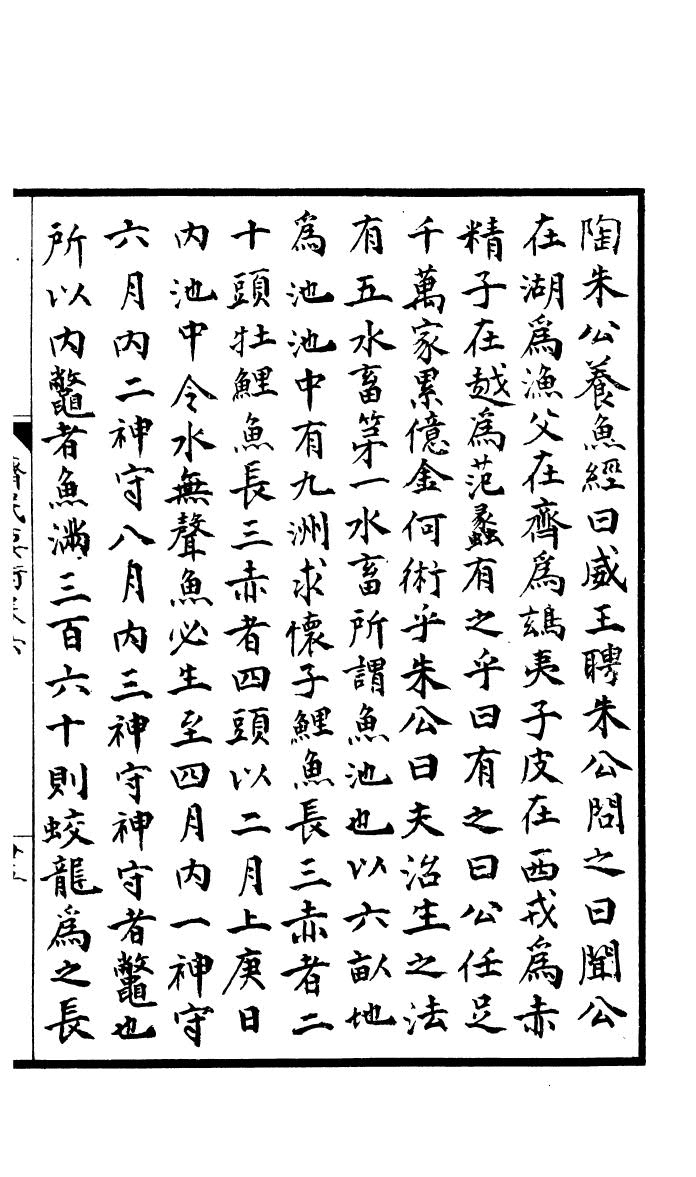 陶朱公養魚經曰威王聘朱公問之曰聞公
在湖爲漁父在齊爲鴟夷子皮在西戎爲赤
精子在越爲范蠡有之乎曰有之曰公任足
千萬家累億金何術乎朱公曰夫治生之法
有五水畜苐一水畜所謂魚池也以六畝地
爲池池中有九洲求懷子鯉魚長三赤者二
十頭牡鯉魚長三赤者四頭以二月上庚日
内池中令水無聲魚必生至四月内一神守
六月内二神守八月内三神守神守者鼈也
所以内鼈者魚滿三百六十則蛟龍爲之長
齊民要術卷六